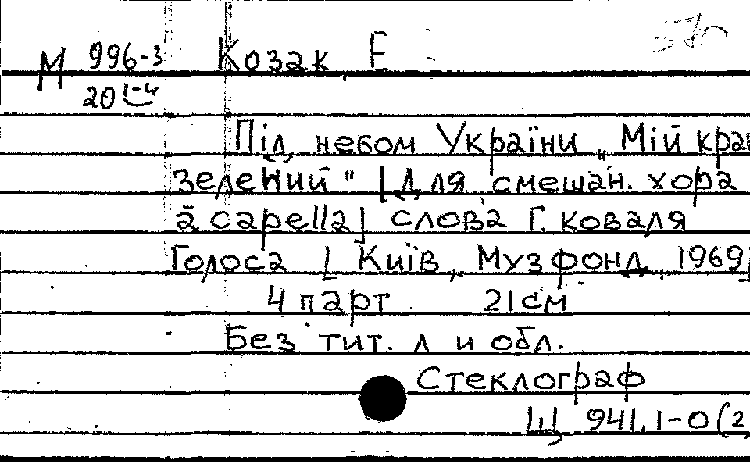 М 996-3 Козак, Е
20 1-4
Під небом України „Мій кра
зелений" [Для смешан. хора
a capella] слова Г. коваля
Голоса [Київ, Музфонд, 1969]
4 парт 21см
Без тит. л и обл.
Стеклограф
Щ 941.1-0(2